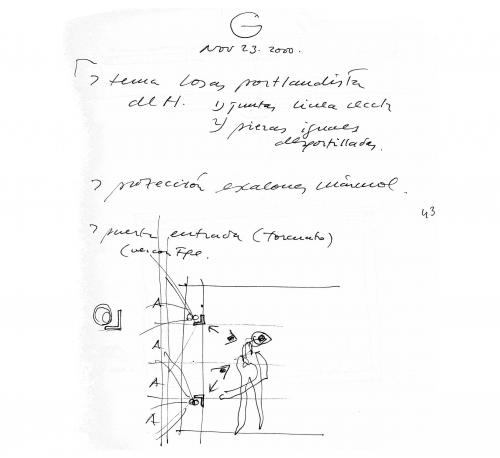 G
Nov 23. 2000.
> tema losas portlandista
de H. 1) juntas linea recta
2) piezas iguales
desportilladas.
> protección escalones mármol.
43
> puerta entrada (Torcuato)
(ver con Fpe.
A
A
A
A